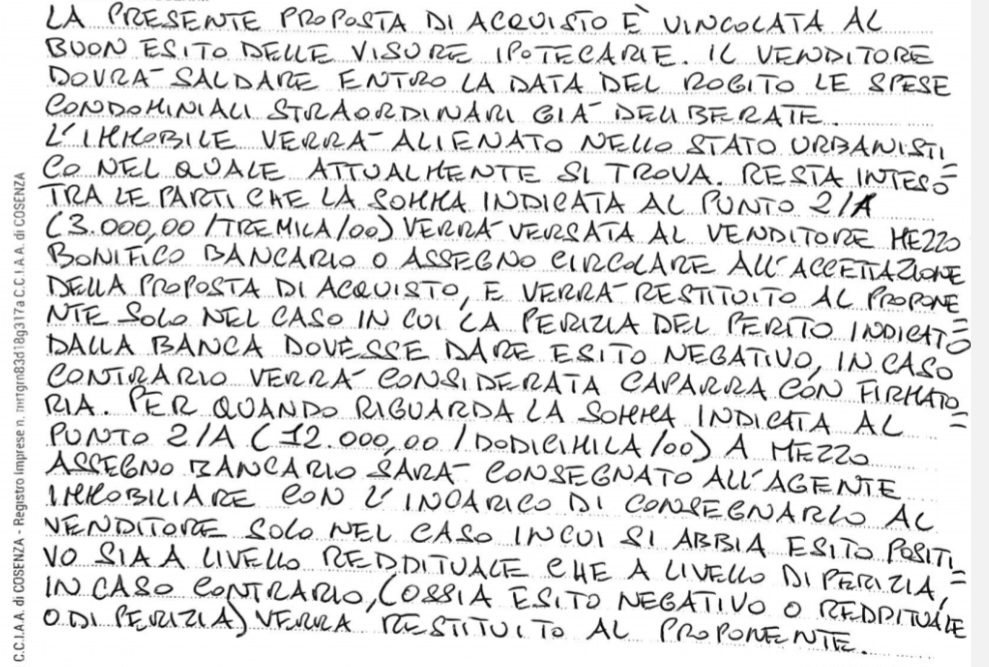 LA PRESENTE PROPOSTA DI ACQUISTO È VINCOLATA AL
BUON ESITO DELLE VISURE IPOTECARIE. IL VENDITORE
DOVRA' SALDARE ENTRO LA DATA DEL ROGITO LE SPESE
CONDOMINIALI STRAORDINARI GIA' DELIBERATE.
L'IMMOBILE VERRA' ALIENATO NELLO STATO URBANISTI
CO NEL QUALE ATTUALMENTE SI TROVA. RESTA INTESO=
TRA LE PARTI CHE LA SOMMA INDICATA AL PUNTO 2/A
(3.000,00 /TREMILA/00) VERRA' VERSATA AL VENDITORE MEZZO
BONIFICO BANCARIO O ASSEGNO CIRCOLARE ALL'ACCETTAZIONE
DELLA PROPOSTA DI ACQUISTO, E VERRA' RESTITUITO AL PROPONE
NTE SOLO NEL CASO IN CUI LA PERIZIA DEL PERITO INDICATO=
DALLA BANCA DOVESSE DARE ESITO NEGATIVO, IN CASO
CONTRARIO VERRA' CONSIDERATA CAPARRA CON FIRMATO=
RIA. PER QUANDO RIGUARDA LA SOMMA INDICATA AL
PUNTO 2/A (12.000,00 /DODICIMILA/00) A MEZZO
ASSEGNO BANCARIO SARA' CONSEGNATO ALL'AGENTE
IMMOBILIARE CON L'INCARICO DI CONSEGNARLO AL
VENDITORE SOLO NEL CASO IN CUI SI ABBIA ESITO POSITI=
VO SIA A LIVELLO REDDITUALE CHE A LIVELLO DI PERIZIA,
IN CASO CONTRARIO, (OSSIA ESITO NEGATIVO O REDDITUALE
O DI PERIZIA) VERRA RESTITUITO AL PROPONENTE.
C.C.I.A.A. di COSENZA - Registro Imprese n. a C.C.I.A.A. di COSENZA